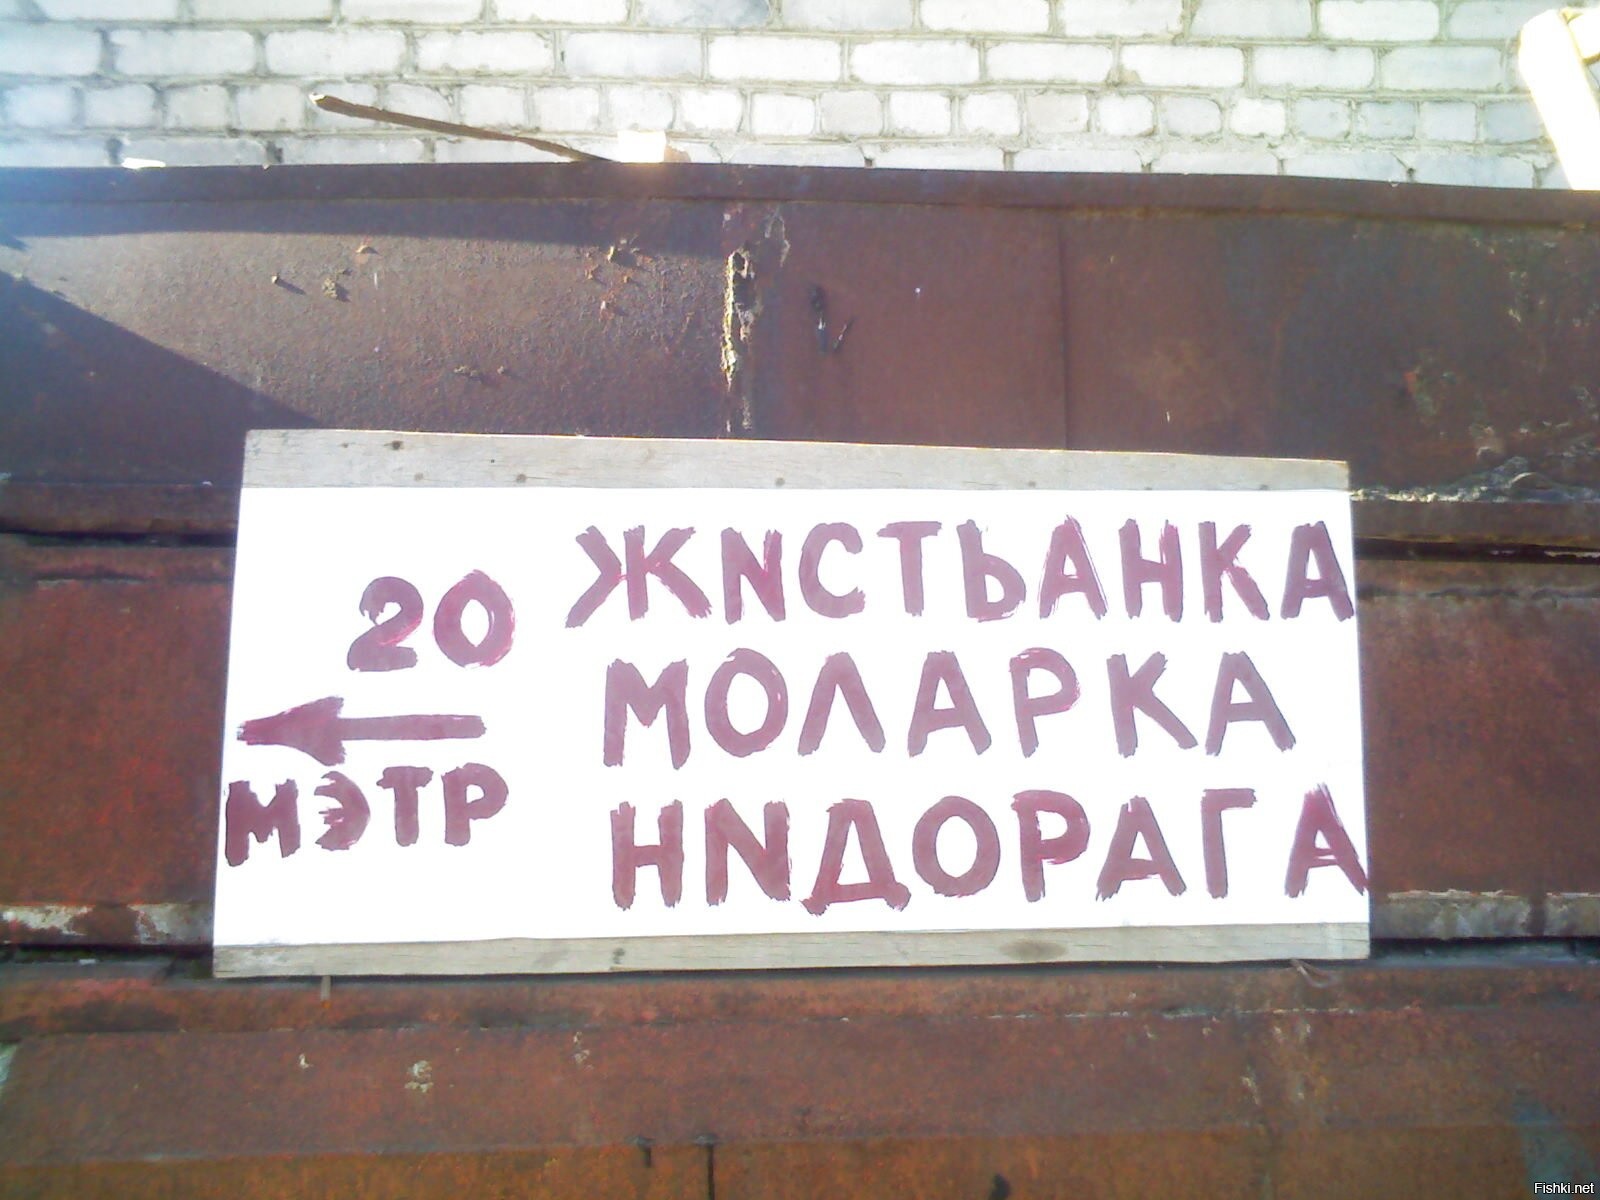 20
МЭТР
ЖИСТЬАНКА
МОЛАРКА
НИДОРАГА
Fishki.net